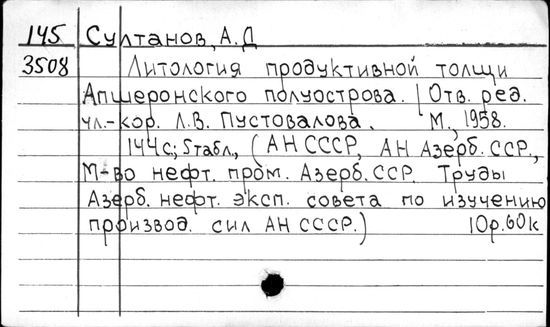 145 Султанов, А.Д
3508 Литология продуктивной толщи
Апшеронского полуострова. | Отв. ред.
чл.-кор. Л.В. Пустовалова. М., 1958.
144с; 5табл., (АН СССР, АН Азерб. ССР.,
М-во нефт. пром. Азерб. ССР. Труды
Азерб. нефт. эксп. совета по изучению
производ. сил АН СССР.) 10р.60к